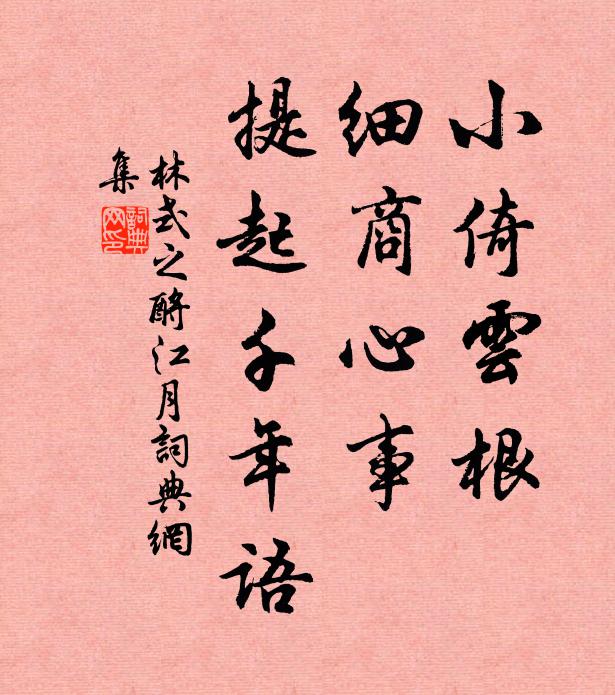 小倚雲根
細商心事
提起千年語
林式之酹江月詞典網
集
詞典
网印